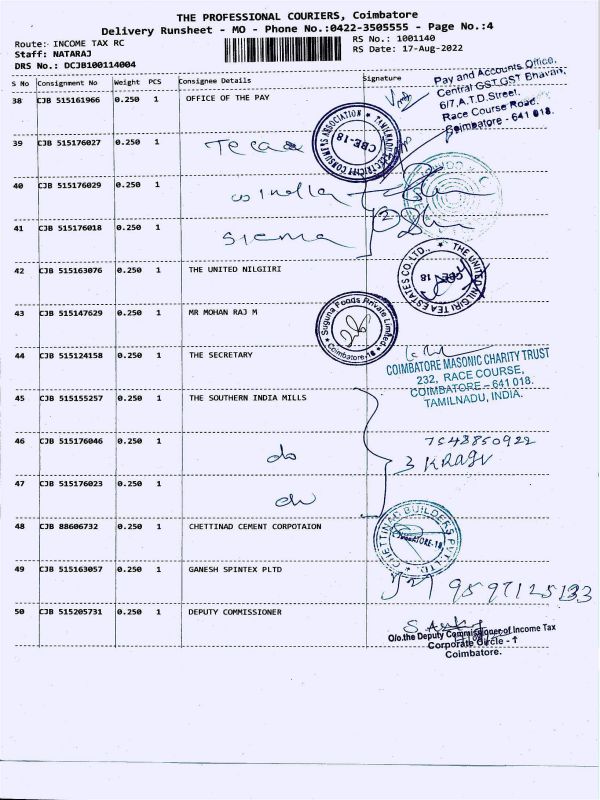 THE PROFESSIONAL COURIERS, Coimbatore
Delivery Runsheet - MO - Phone No.:0422-3505555 - Page No.:4
Route: INCOME TAX RC RS No.: 1001140
Staff: NATARAJ RS Date: 17-Aug-2022
DRS No.: DCJB100114004
S No Consignment No Weight PCS Consignee Details Signature
38 CJB 515161966 0.250 1 OFFICE OF THE PAY
Pay and Accounts Office,
Central GST,GST Bhavan,
6/7,A.T.D.Street,
Race Course Road,
Coimbatore - 641 018.
TAMILNADU ELECTRICITY CONSUMERS ASSOCIATION
CBE-18
39 CJB 515176027 0.250 1
40 CJB 515176029 0.250 1
41 CJB 515176018 0.250 1
42 CJB 515163076 0.250 1 THE UNITED NILGIIRI
THE UNITED NILGIRI TEA ESTATES CO. LTD.,
CBE 18
43 CJB 515147629 0.250 1 MR MOHAN RAJ M
Suguna Foods Private Limited
Coimbatore-18
44 CJB 515124158 0.250 1 THE SECRETARY
COIMBATORE MASONIC CHARITY TRUST
232, RACE COURSE,
COIMBATORE - 641 018.
TAMILNADU, INDIA.
45 CJB 515155257 0.250 1 THE SOUTHERN INDIA MILLS
46 CJB 515176046 0.250 1 do
7548850922
47 CJB 515176023 0.250 1 do
48 CJB 88606732 0.250 1 CHETTINAD CEMENT CORPOTAION
CHETTINAD BUILDERS PVT. LTD.
COIMBATORE-18
49 CJB 515163057 0.250 1 GANESH SPINTEX PLTD
50 CJB 515205731 0.250 1 DEPUTY COMMISSIONER
O/o.the Deputy Commissioner of Income Tax
Corporate Circle - 1
Coimbatore.